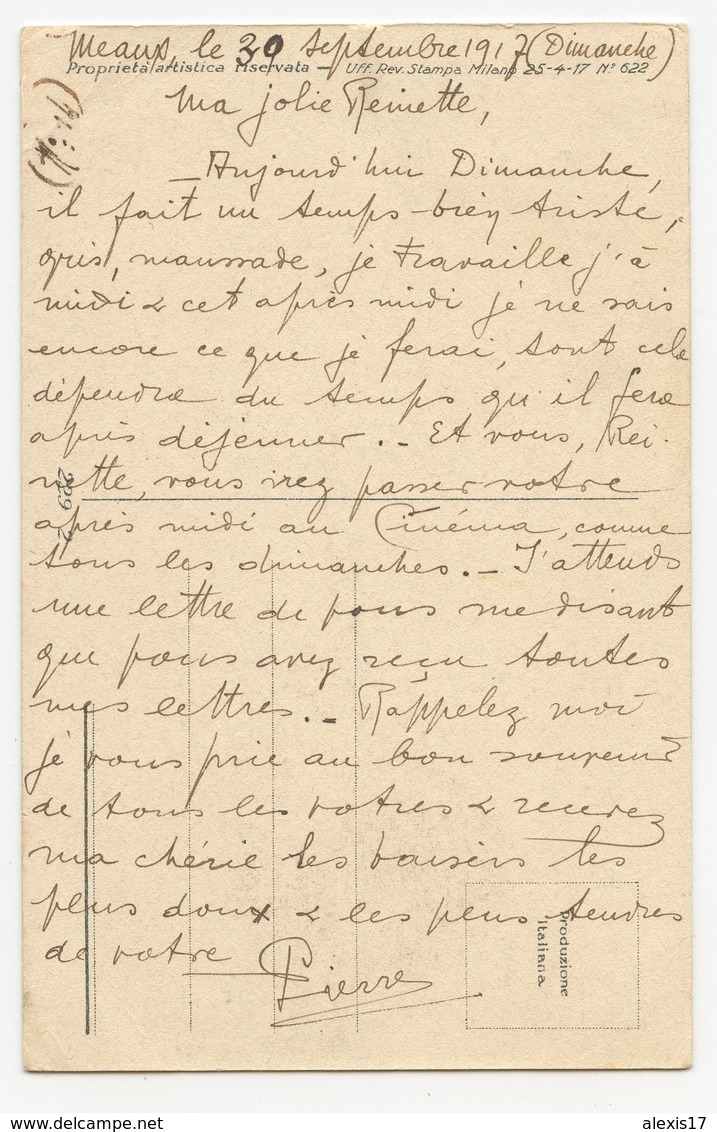 Meaux, le 30 septembre 1917 (Dimanche)
Proprietà artistica riservata — Uff. Rev. Stampa Milano 25-4-17 N° 622
Ma jolie Reinette,
— Aujourd'hui Dimanche,
il fait un temps bien triste,
gris, maussade, je travaille j'à
midi & cet après midi je ne sais
encore ce que je ferai, tout cela
dépendra du temps qu'il fera
après déjeuner. – Et vous, Rei-
nette, vous irez passer votre
après midi au Cinéma, comme
tous les dimanches. – J'attends
une lettre de vous me disant
que vous avez reçu toutes
mes lettres. – Rappelez moi
je vous prie au bon souvenir
de tous les votres & recevez
ma chérie les baisers les
plus doux & les plus tendres
de votre Pierre
229-2
produzione
italiana
delcampe.net
alexis17